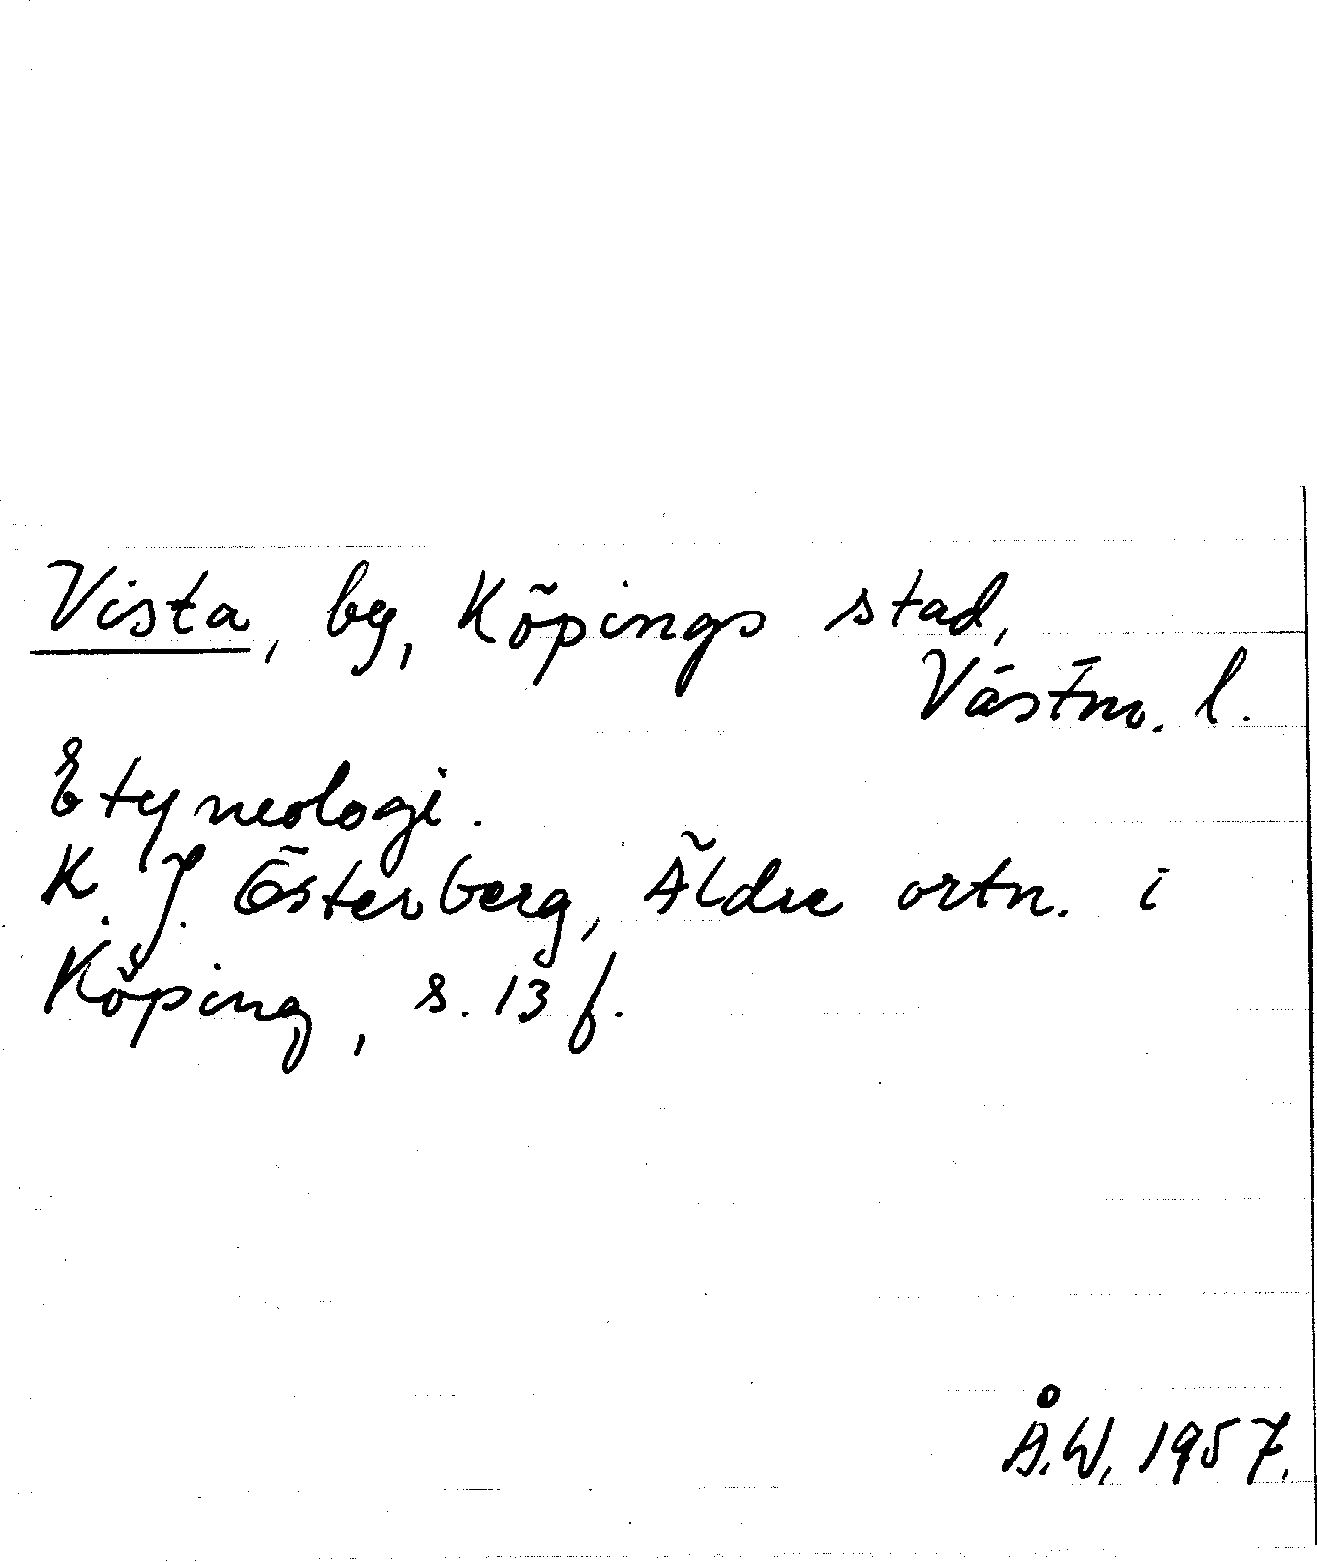 Vista, by, Köpings stad,
Västm. l.
Etymologi.
K. J. Österberg, Äldre ortn. i
Köping, s. 13 f.
Å.W. 1957.